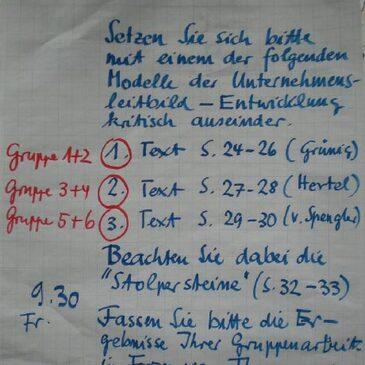 Setzen Sie sich bitte
mit einem der folgenden
Modelle der Unternehmens-
leitbild - Entwicklung
kritisch auseinder.
Gruppe 1+2 1. Text S. 24-26 (Grünig)
Gruppe 3+4 2. Text S. 27-28 (Hertel)
Gruppe 5+6 3. Text S. 29-30 (v. Spengler)
Beachten Sie dabei die
"Stolpersteine" (S. 32-33)
9.30
Fr. Fassen Sie bitte die Er-
gebnisse Ihrer Gruppenarbeit
in Form von